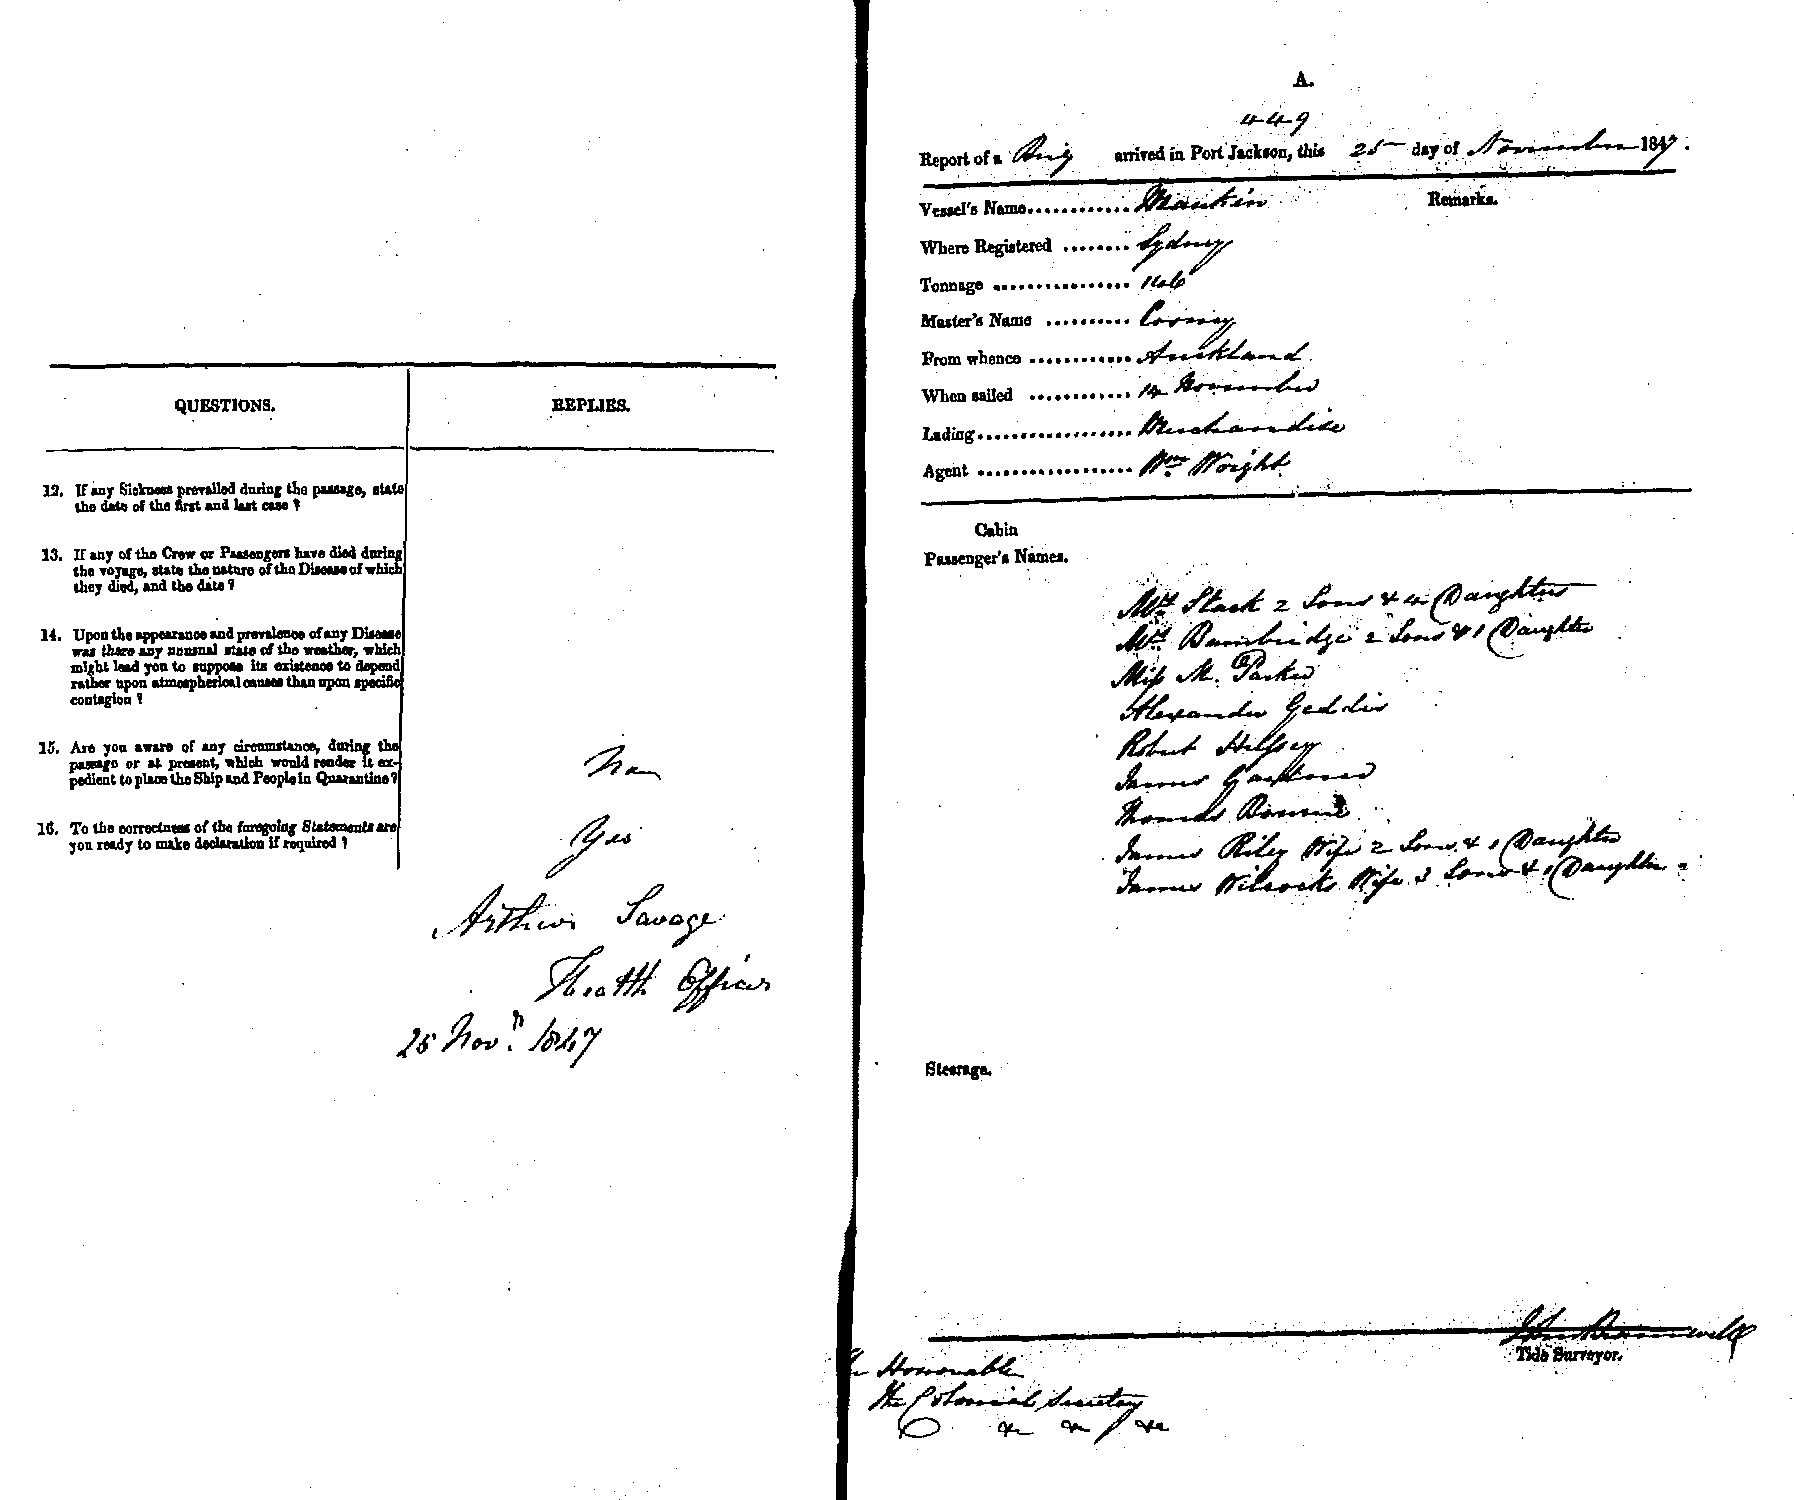 QUESTIONS. REPLIES.
12. If any Sickness prevailed during the passage, state
the date of the first and last case ?
13. If any of the Crew or Passengers have died during
the voyage, state the nature of the Disease of which
they died, and the date ?
14. Upon the appearance and prevalence of any Disease
was there any unusual state of the weather, which
might lead you to suppose its existence to depend
rather upon atmospherical causes than upon specific
contagion ?
15. Are you aware of any circumstance, during the
passage or at present, which would render it ex-
pedient to place the Ship and People in Quarantine ?
16. To the correctness of the foregoing Statements are
you ready to make declaration if required ?
Yes
Arthur Savage
Health Officer
25 Novr. 1847
A.
449
Report of a Brig arrived in Port Jackson, this 25 day of November 1847.
Vessel's Name............ Maukin Remarks.
Where Registered ........ Sydney
Tonnage ................ 146
Master's Name ..........
From whence ............ Auckland
When sailed ............ 14 November
Lading.................. Merchandise
Agent .................. Wm Wright
Cabin
Passenger's Names.
Mrs Stack 2 Sons & 4 Daughters
Mrs Bambridge 2 Sons & 1 Daughter
Miss M. Parker
Alexander Geddis
Robert
James
Thomas
James Riley Wife 2 Sons & 1 Daughter
James Wilcocks Wife 3 Sons & 1 Daughter
Steerage.
Tide Surveyor.
The Honorable
The Colonial Secretary
&c &c &c